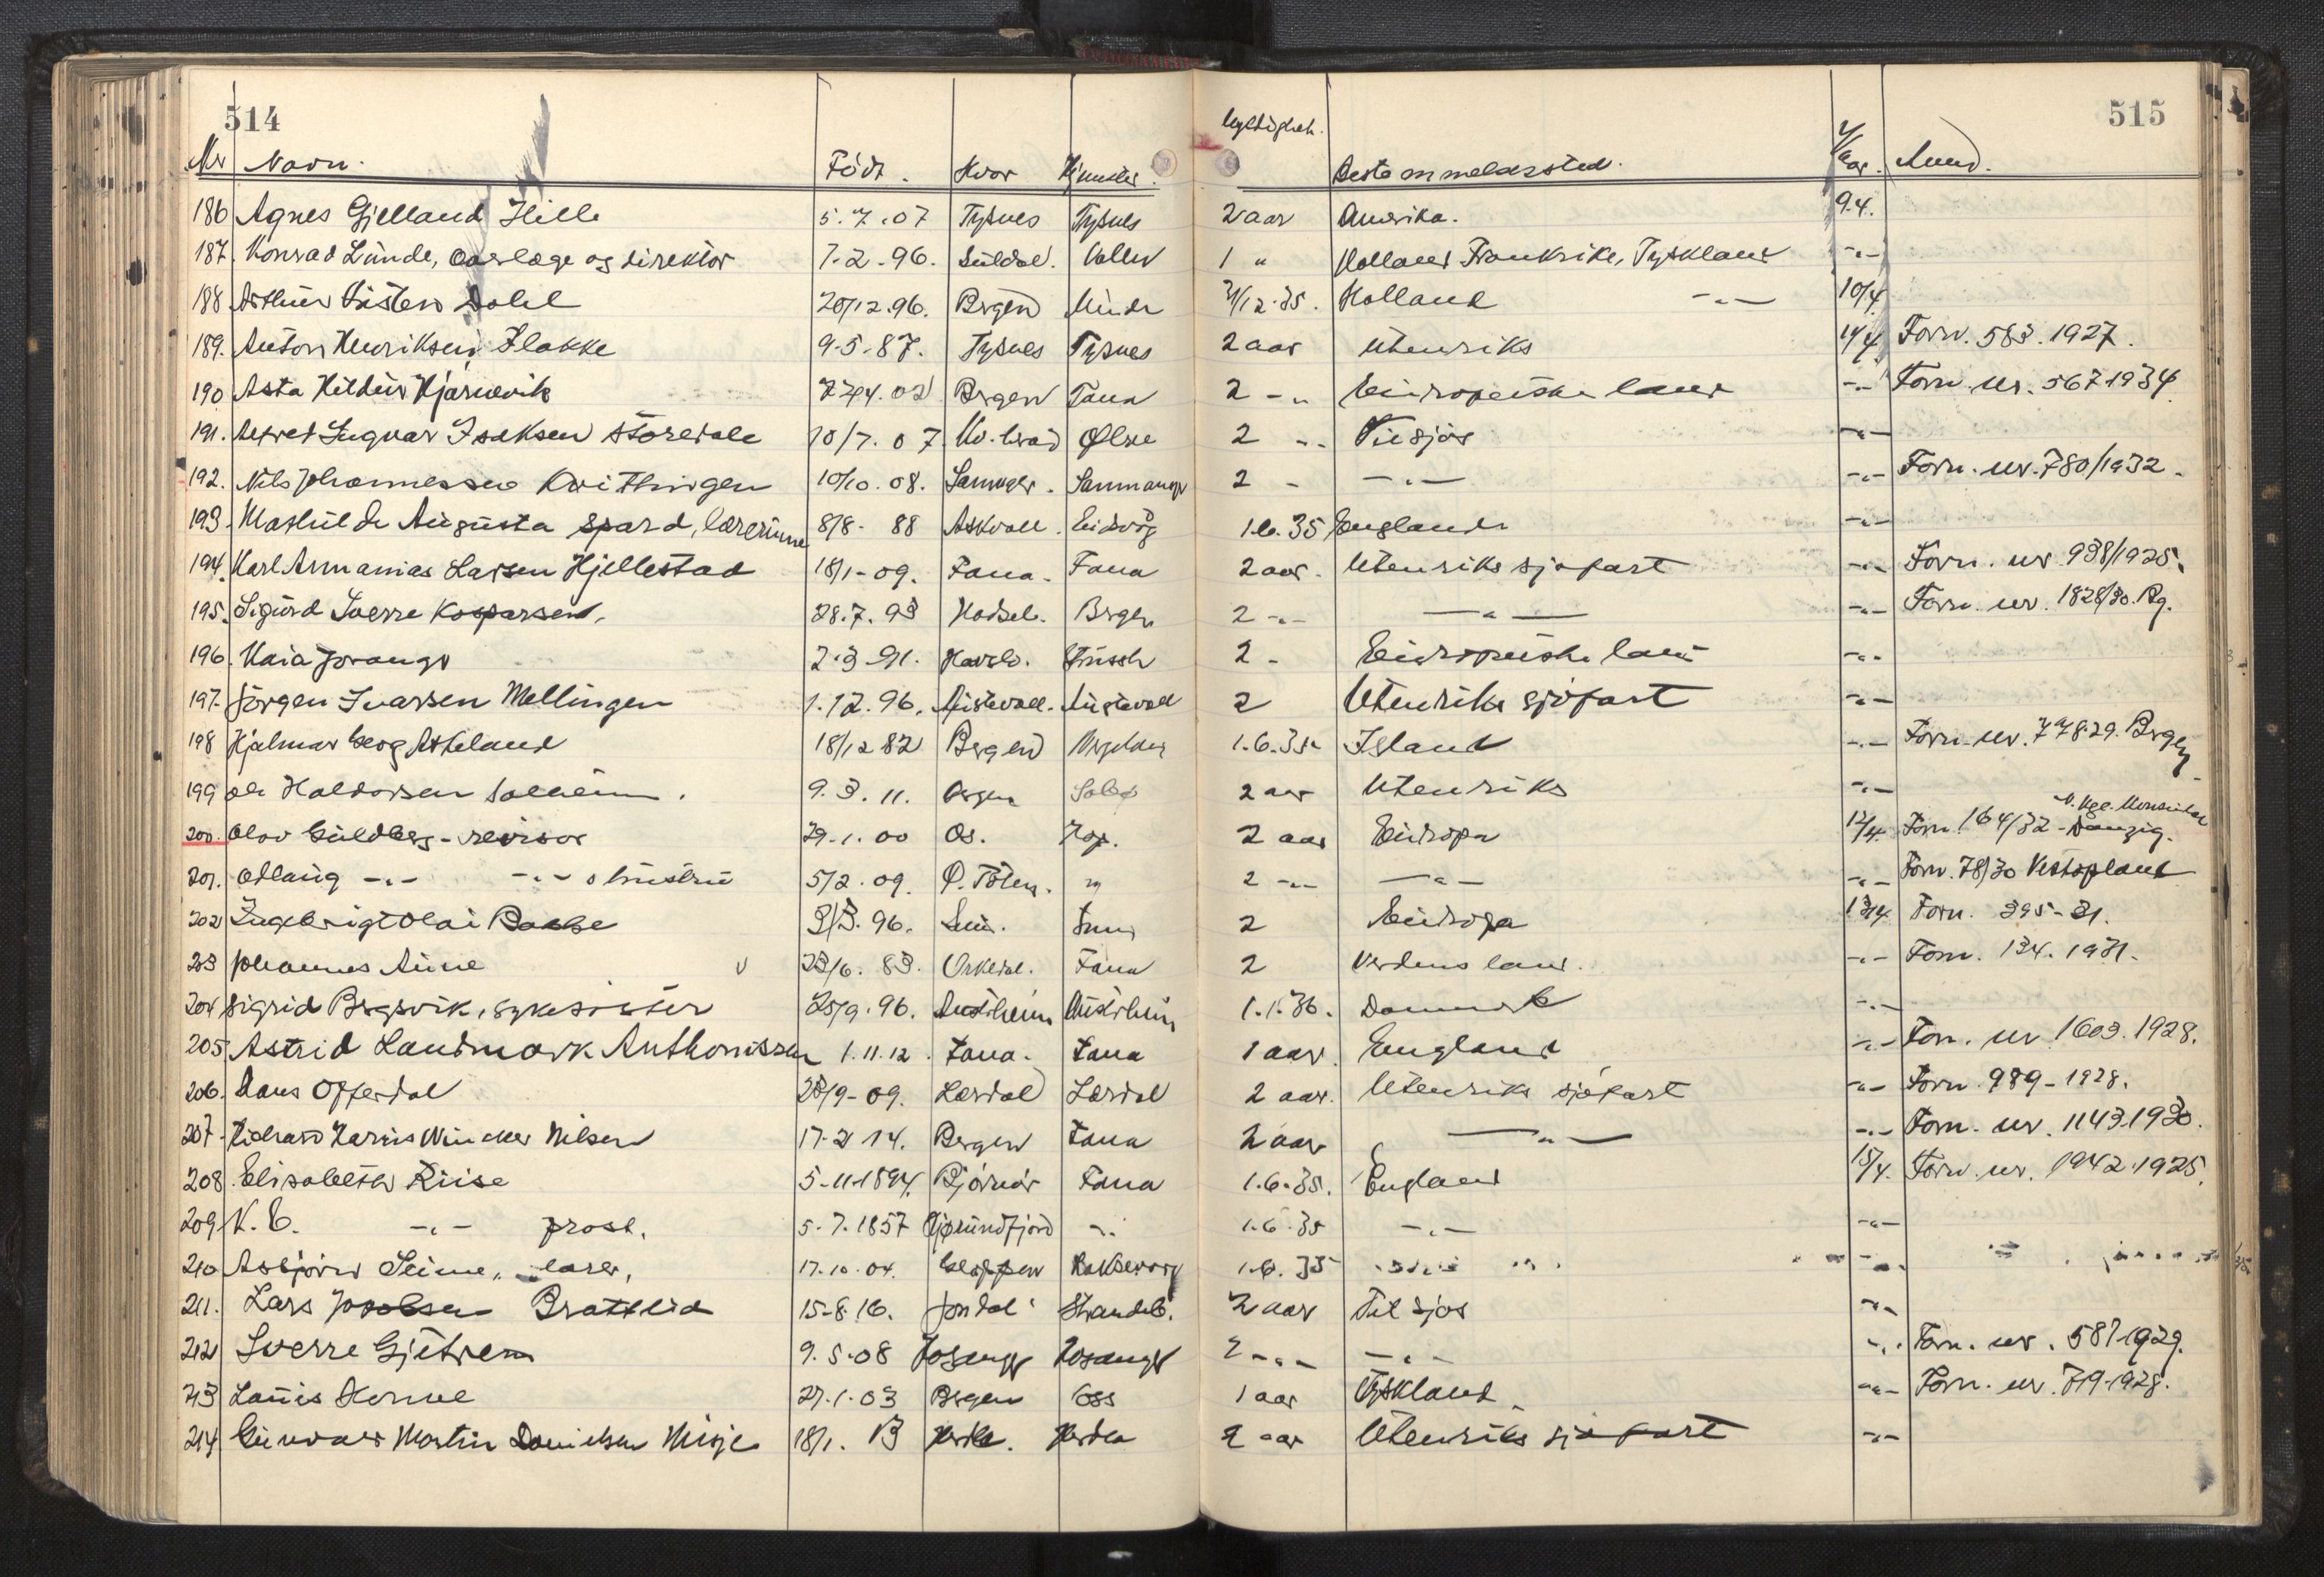 514
515
Nr Navn. Født. Hvor Hjemster. Gyldighet. Bestemmelsessted. Aar. Anm.
186 Agnes Gjelland Hille 5.7.07 Tysnes Tysnes 2 aar Amerika. 9.4.
187. Konrad Lunde, overlæge og direktør 7-2-96. Suldal. Valen 1 " Holland Frankrike, Tyskland -"-
188 Arthur Dahl 20/12.96. Bergen Minde 31/12.35. Holland -"- 10/4
189. Anton Henriksen Flakke 9-5-87. Tysnes Tysnes 2 aar Utenriks 11/4 Forn. 583.1927.
190 Asta 02 Bergen Fana 2 -"- Europeiske land -"- Forn. nr. 567-1934
191. Ingvar Isaksen Storedale 10/7.07 Ølve 2 -"- Til sjøs -"-
192. Nils Johannessen Kvittingen 10/10.08. Samnanger. Samnanger 2 - -"- -"- Forn. nr. 780/1932.
193. Mathilde Augusta Spard, lærerinne 8/8-88 Askvoll. Eidsvåg 1.6.35 England -"-
194. Karl Annanias Larsen Hjellestad 18/1-09. Fana. Fana 2 aar. Utenriks sjøfart -"- Forn. nr 938/1925.
195. Sigurd Sverre Kasparsen. 28.7.93 Hadsel. Bergen 2 -"- -"- -"- Forn. nr. 1828/30. Bg.
196. Kaia 2-3-91. 2 - Europeiske land -"-
197. Jørgen Ivarsen Mellingen 1.12.96. Austevoll. Austevoll 2 Utenriks sjøfart -"-
198 Hjalmar Georg Askeland 18/12 82 Bergen 1.6.35 Island -"- Forn. nr. 778.29. Bergen
199 Ole Haldorsen Solheim. 9.3.11. Bergen 2 aar Utenriks -"-
200. Olav Guldberg - revisor 29.1.00 Os. Hop. 2 aar Europa 12/4. Forn. 164/32 - Danzig.
201. Odlaug -"- -"-s hustru 5/2.09. Ø. Toten. " 2 -"- -"- -"- Forn. 78/30 Vestopland
202 Ingebrigt Olai Bakke 3/3.96. 2 Europa 13/4 Forn. 395-31.
203 Johannes Aune v 23/6.83. Orkedal. Fana 2 Verdens land. -"- Forn. 134.1931.
204 Sigrid Bergsvik, sykesøster 25/9.96. Austrheim Austrheim 1.1.36. Danmark -"-
205 Astrid Landmark Anthonissen 1.11.12. Fana. Fana 1 aar. England -"- Forn. nr 1603.1928.
206. Hans Offerdal 28/9-09. Lærdal Lærdal 2 aar. Utenriks sjøfart -"- Forn. 989-1928.
207. Nilsen 17-2 14. Bergen Fana 2 aar -"- -"- Forn. nr. 1143.1930.
208. Elisabeth Riise 5-11-1894. Bjørnør Fana 1.6.35. England 15/4. Forn. nr. 1942.1925.
209. K. E. -"- prost. 5.7.1857 Hjørundfjord -"- 1.6.35 -"- -"-
210 Asbjørn Seime, lærer, 17.10.04. 1.6.35
211. Lars Jacobsen Brattelid 15-8.16. Jondal Strandeb. 2 aar Til sjøs -"-
212 Sverre Gjetrem 9.5.08 Hosanger Hosanger 2 -"- -"- -"- Forn. nr. 587-1929.
213 Louis Horne 27.1.03 Bergen Oss 1 aar Tyskland -"- Forn. nr. 719-1928.
214 Martin Danielsen Misje 18/1.13 Herdla. Herdla 2 aar Utenriks sjøfart -"-